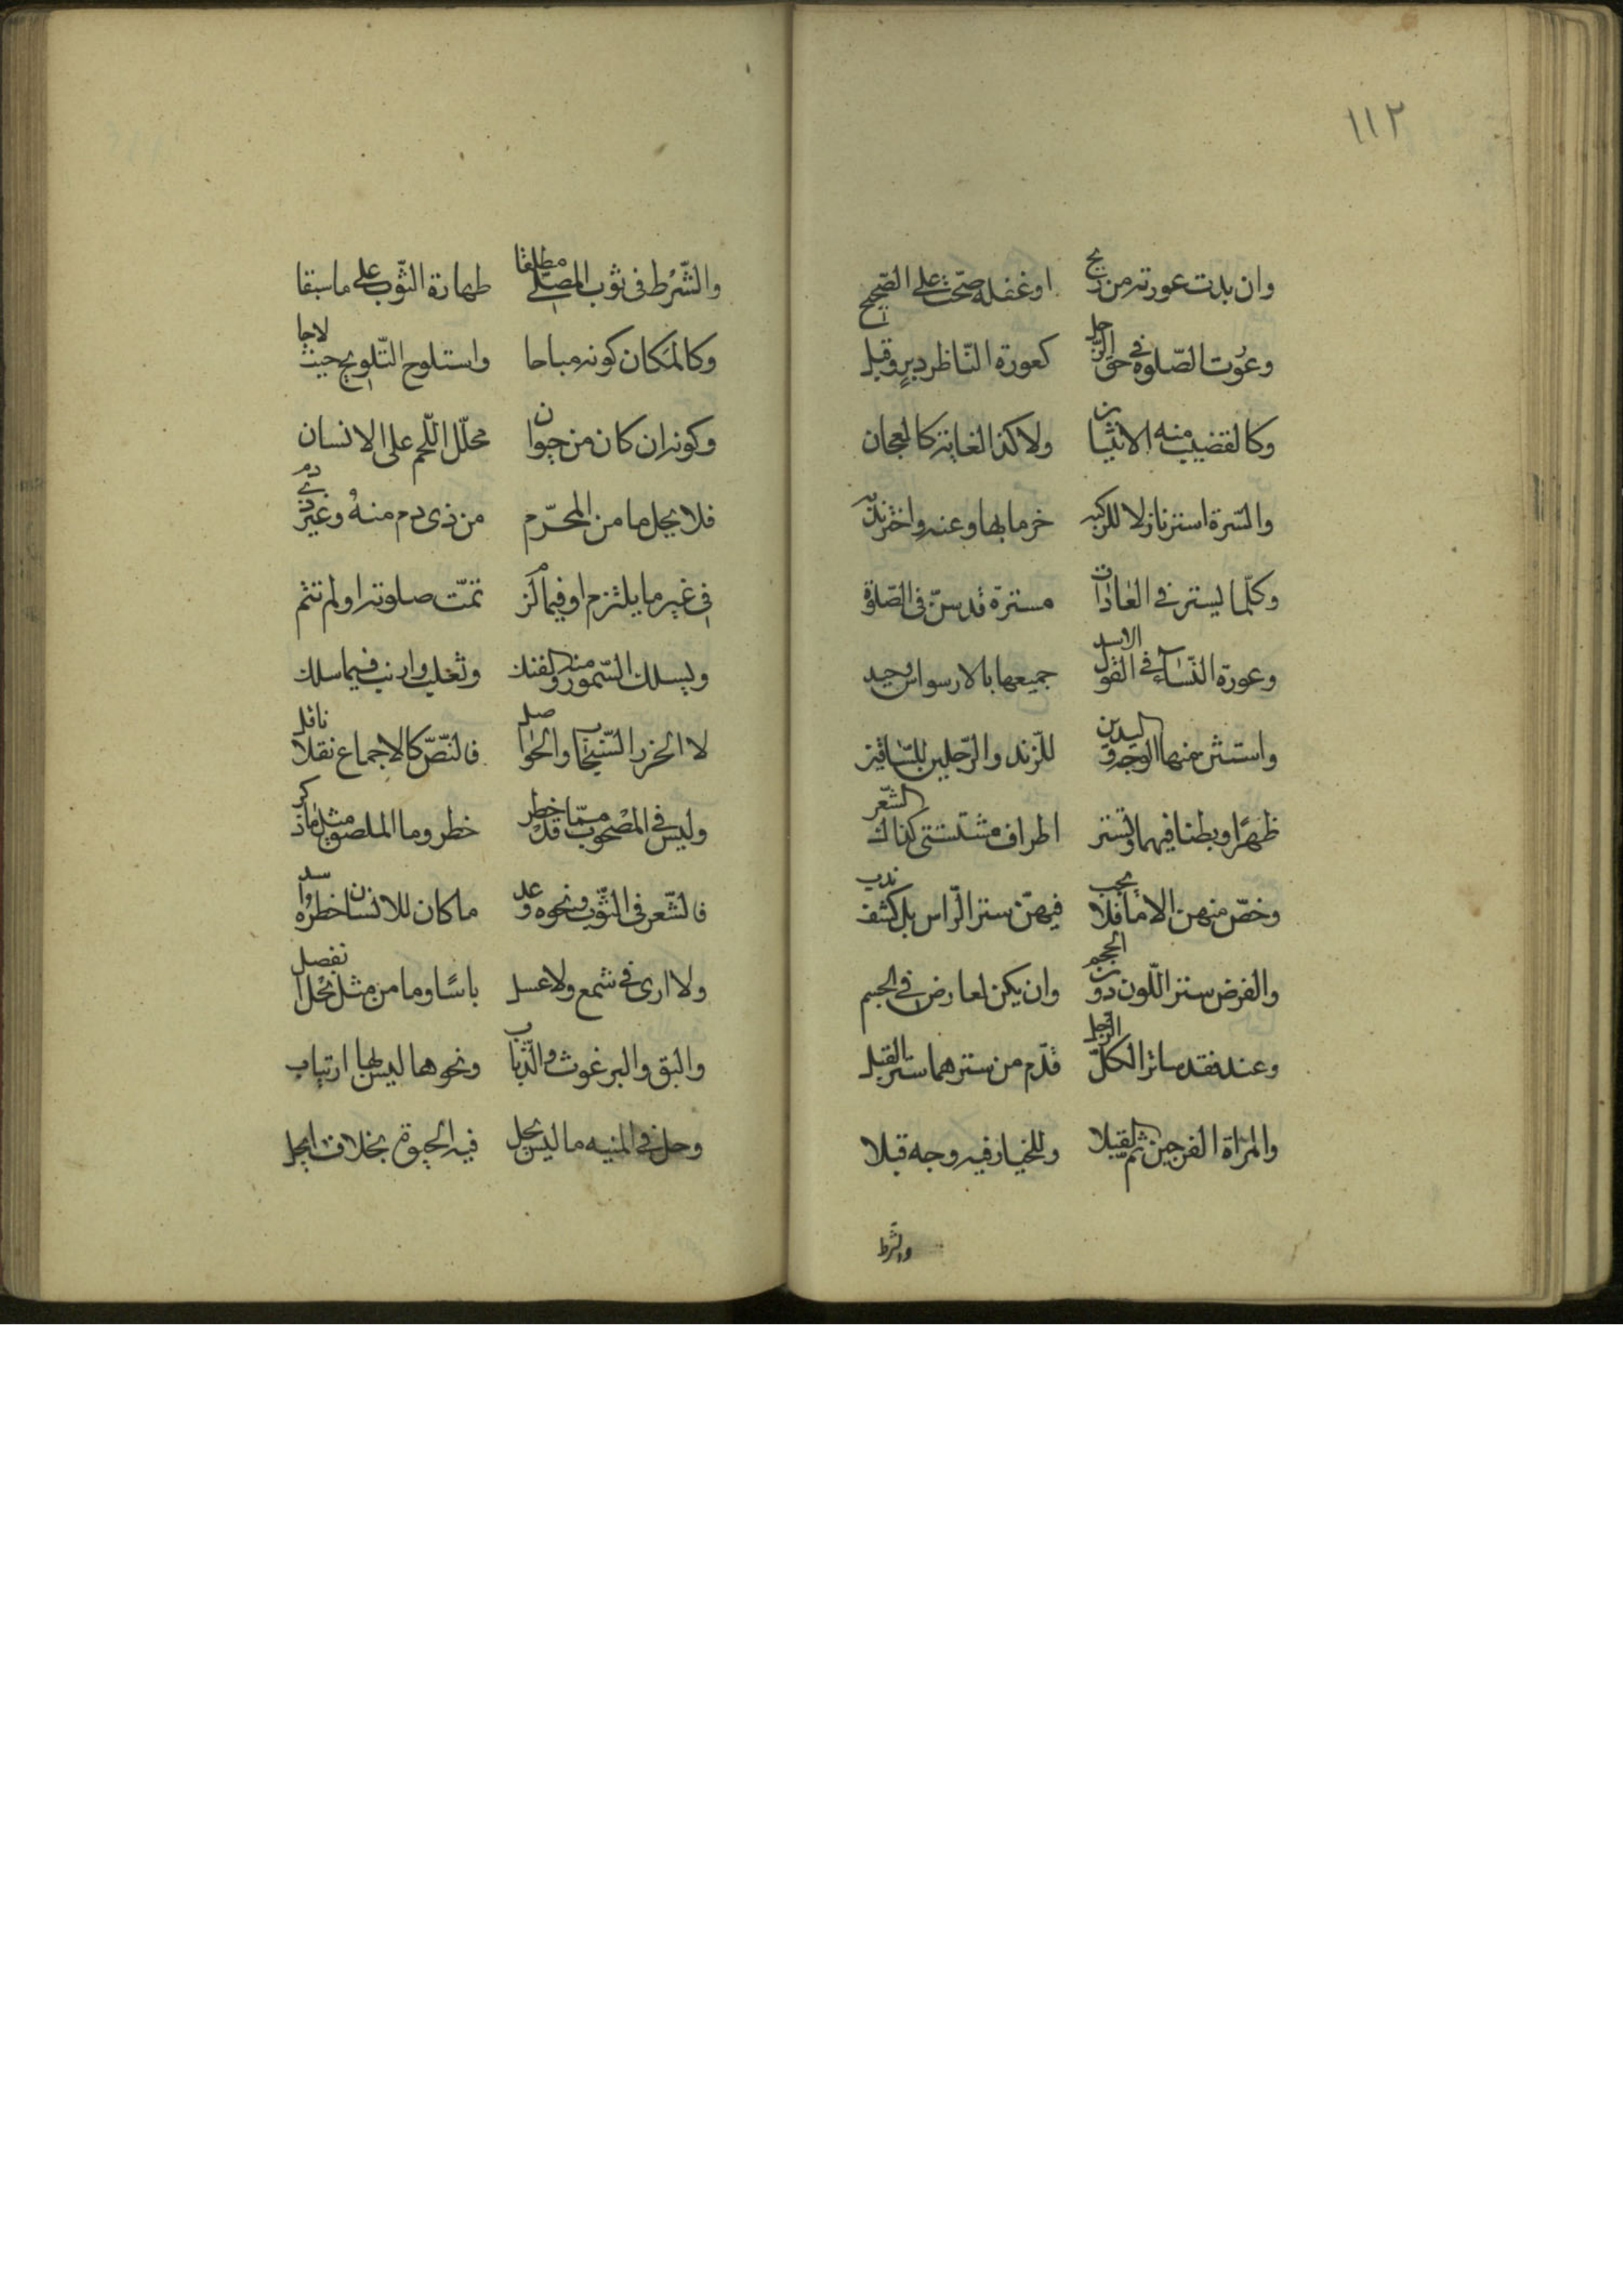 ١١٢
وان بدت عورته من ريح اوغفلة صحّت على الصّحيح
وعورت الصّلوة فى حق الرّجل كعورة النّاظر دبرٍ وقبل
وكالقضيب منه الانثيان ولا كذا لغايته كالعجان
والسّرة استر نازلا للركبه خرما بها وعنه
وكلّما يستر فى العادات مسترة قدسنّ فى الصّلوة
وعورة النّسآء فى القول الاسد جميعها بالارسواس وجيد
واستثن منها الوجه واليدين للّزند والرّجلين للسّاقين
ظهرًا وبطنا فيهما وتستر اطراف كذاك الشّعر
وخصّ منهن الاما فلا يجب فيهنّ ستر الرّاس بل كشف ندب
والفرض ستر اللّون دون الحجم وان يكن لعارض فى الجسم
وعند فقد ساتر الكلّ الرّجل قدّم من سترهما ستر القبل
والمرأة الفرجين ثم القبلا وللخيار فيه وجه قبلا
والشّرط
والشّرط فى ثوب المصلّى مطلقا طهارة الثّوب على ما سبقا
وكالمكان كونه مباحا واستلوح التّلويح حيث لاحا
وكونه ان كان من حيوان محلّل اللّحم على الانسان
فلا يحل ما من المحرّم من ذى دم منه وغير ذى دم
فى غير ما يلتزم او فيما لزم تمّت صلوته او لم تتم
وليسلك السّمور منه والفنك وثعلب وارنب فيما سلك
لا الخز والسّنجاب والحواصل فالنّصّ كالاجماع نقلا ناقل
وليس فى المصحوب ممّا قد خطر خطر وما الملصوق مثل ما ذكر
فالشّعر فى الثّوب ونحوه وعد ما كان للانسان اخطره وسد
ولا ارى فى شمع ولا عسل باسًا وما من مثل نحل انفصل
والبق والبرغوث والذّباب ونحوها ليس بها ارتياب
وحل فى المنيه ما ليس يحل فيه الحيوة بخلاف ما يحل